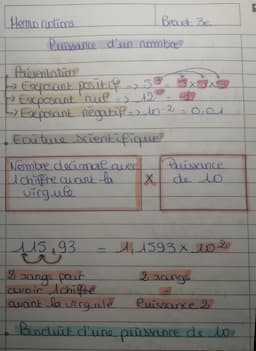 Memo notions Brevet 3e
Puissance d'un nombre
Présentation
→ Exposant positif => 3³ = 3x3x3
→ Exposant nul => 12⁰ = 1
→ Exposant négatif => 10⁻² = 0,01
• Ecriture scientifique
Nombre décimal avec 1 chiffre avant la virgule X Puissance de 10
115,93 = 1,1593 x 10²
2 rangs pour 2 rangs
avoir 1 chiffre =
avant la virgule Puissance 2
• Produit d'une puissance de 10